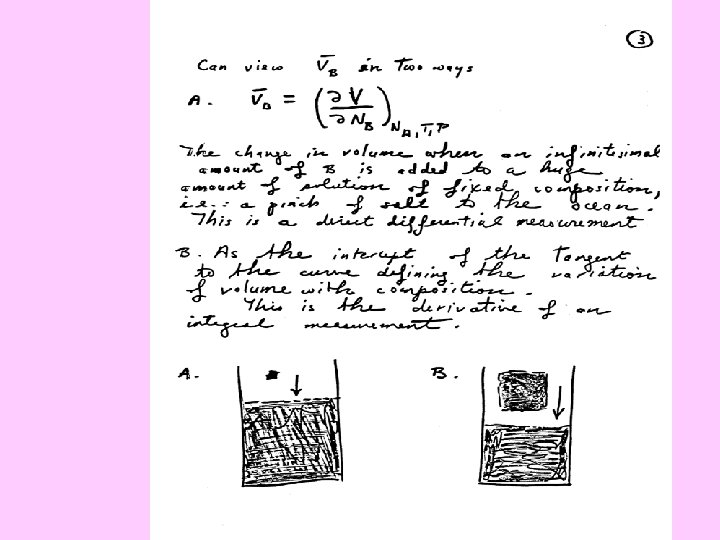 3
Can view V̄_B in two ways
A. V̄_B = (∂V/∂N_B)_{N_A, T, P}
The change in volume when an infinitesimal
amount of B is added to a huge
amount of solution of fixed composition,
i.e.: a pinch of salt to the ocean.
This is a direct differential measurement
B. As the intercept of the Tangent
to the curve defining the variation
of volume with composition.
This is the derivative of an
integral measurement.
A. B.